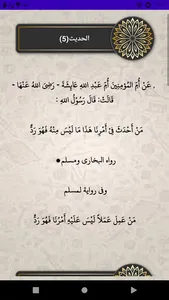 الحديث(5)
. عَنْ أُمِّ المُؤْمِنِينَ أُمِّ عَبْدِ اللهِ عَائِشَةَ - رَضِيَ اللهُ عَنْهَا -
- قَالَتْ: قَالَ رَسُولُ اللهِ :
مَنْ أَحْدَثَ فِي أَمْرِنَا هَذَا مَا لَيْسَ مِنْهُ فَهُوَ رَدٌّ
رواه البخارى ومسلم
وفى رواية لمسلم
مَنْ عَمِلَ عَمَلاً لَيْسَ عَلَيْهِ أَمْرُنَا فَهُوَ رَدٌّ